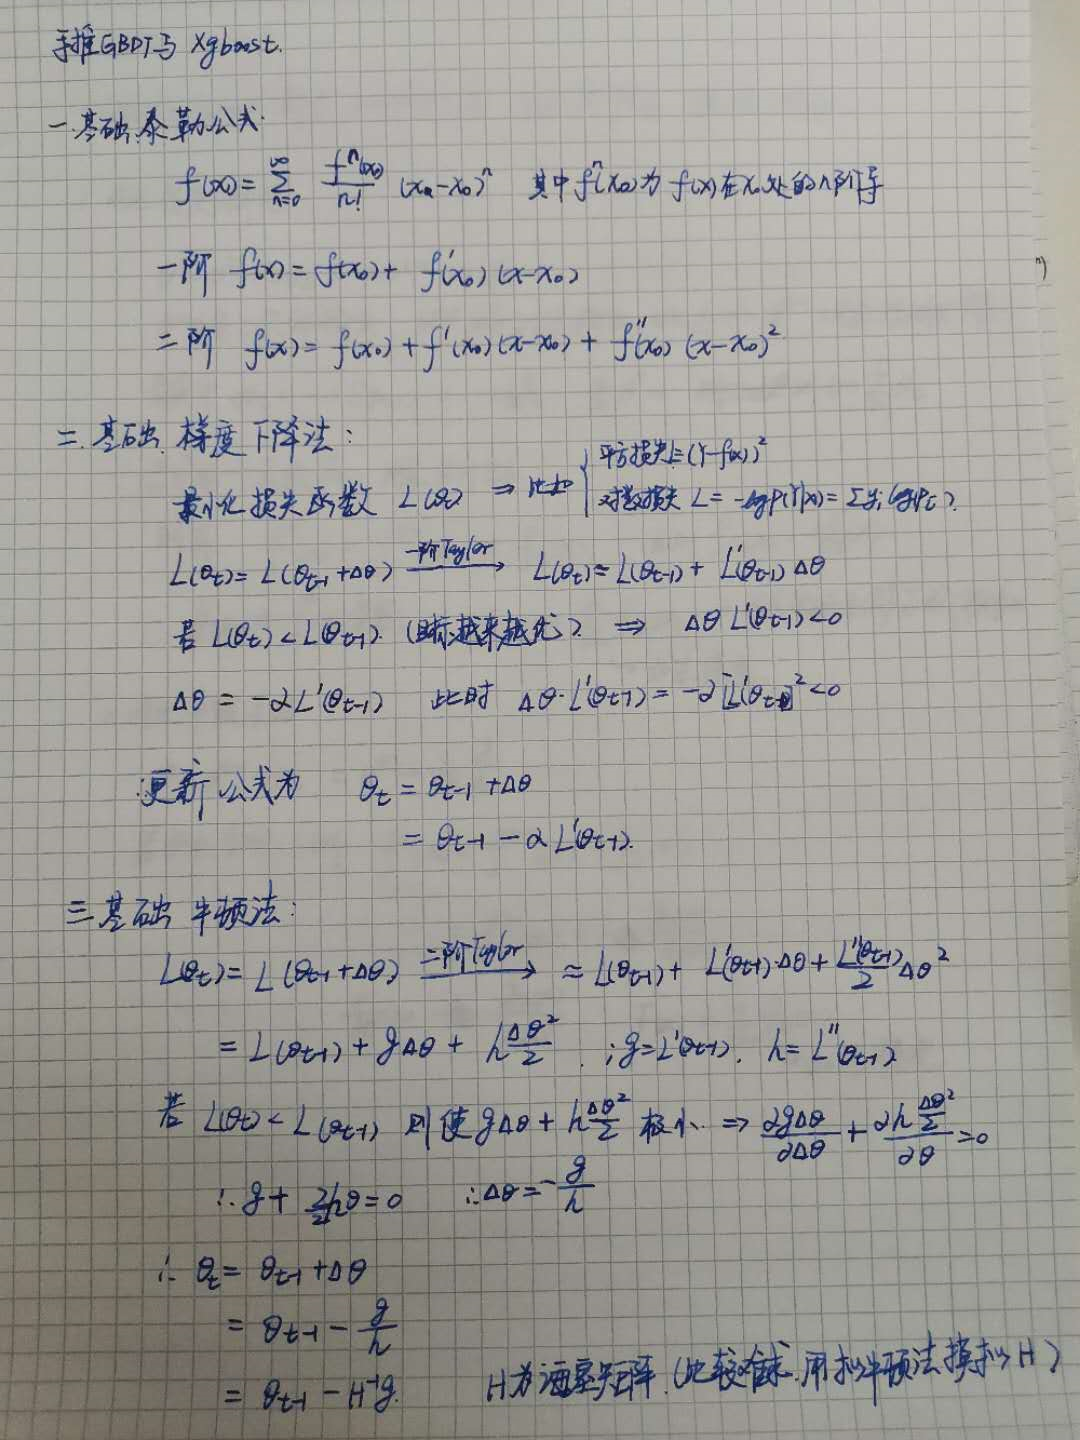 手推GBDT与 Xgboost.
一.基础.泰勒公式.
f(x) = ∑_{n=0}^{∞} f^n(x0)/n! (x_n-x0)^n 其中f^n(x0)为 f(x)在x0处的n阶导
一阶 f(x) = f(x0) + f'(x0)(x-x0)
二阶 f(x) = f(x0) + f'(x0)(x-x0) + f''(x0)(x-x0)²
二.基础.梯度下降法:
最小化损失函数 L(θ) ⇒ 比如 { 平方损失L=(Y-f(x))²
对数损失 L = -logP(Y|X) = ∑y_i log(P_i).
L(θt) = L(θt-1+Δθ) —一阶Taylor→ L(θt) = L(θt-1) + L'(θt-1)Δθ
若 L(θt) < L(θt-1). (目标越来越优). ⇒ Δθ L'(θt-1) < 0
Δθ = -αL'(θt-1) 此时 Δθ·L'(θt-1) = -α[L'(θt-1)]² < 0
∴更新公式为 θt = θt-1 + Δθ
= θt-1 - αL'(θt-1).
三.基础 牛顿法:
L(θt) = L(θt-1+Δθ) —二阶Taylor→ ≈ L(θt-1) + L'(θt-1)·Δθ + L''(θt-1)/2 Δθ²
= L(θt-1) + gΔθ + h Δθ²/2 . ; g=L'(θt-1). h=L''(θt-1)
若 L(θt) < L(θt-1) 则使 gΔθ + h Δθ²/2 极小. ⇒ ∂gΔθ/∂Δθ + ∂h Δθ²/2 /∂θ = 0
∴ g + 2/2 hθ = 0 ∴ Δθ = -g/h
∴ θt = θt-1 + Δθ
= θt-1 - g/h
= θt-1 - H⁻¹g. H为海塞矩阵.(比较难求.用拟牛顿法模拟H)